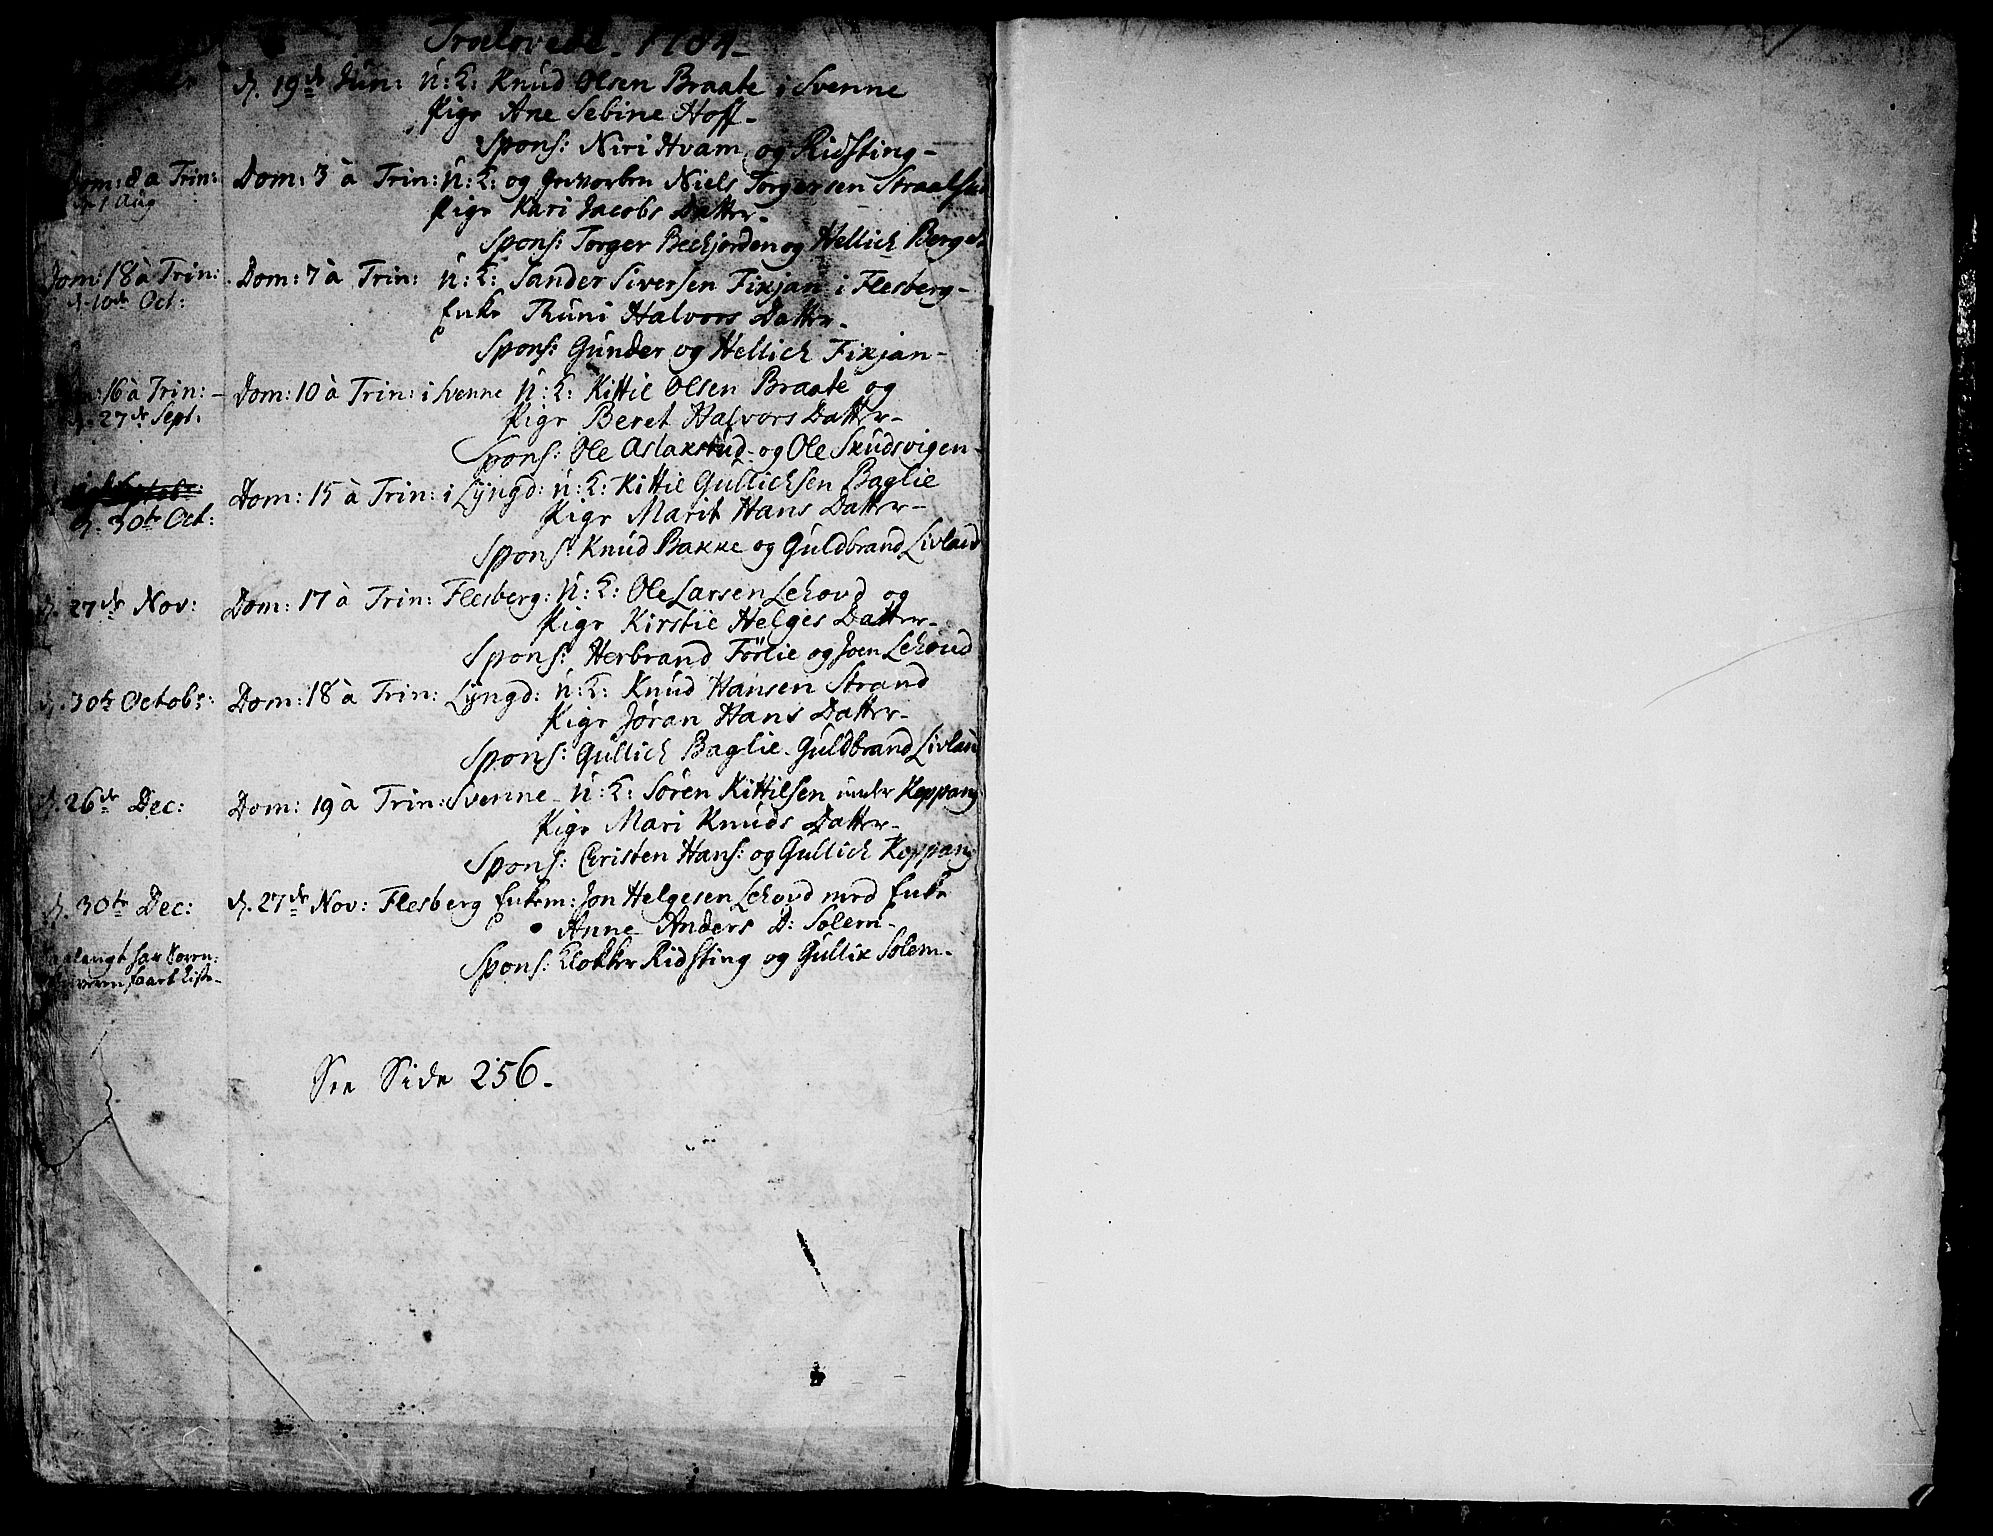 Trolovede 1784
d. 19de Jun: U: K: Knud Olsen Braate i Svenne
Pige Ane Sebine Hoff -
Spons: Niri Hvam og Ridsting -
Dom: 8 a Trin: Dom: 3 à Trin: U: K: og Gevorben Niels Torgersen
d. 1 Aug Pige Kari Jacobs Datter -
Spons: Torger Beckjorden og Hellich Berget
Dom 18 à Trin: Dom: 7 à Trin: U: K: Sander Siversen Fixjan i Flesberg -
d. 10de Oct: Enke Thuni Halvors Datter -
Spons: Gunder og Hellich Fixjan -
16 à Trin: - Dom: 10 à Trin: i Svenne U: K: Kittil Olsen Braate og
d. 27de Sept. Pige Beret Halvors Datter -
Spons: Ole Aslakstud - og Ole Skudsvigen -
Dom: 15 à Trin: i Lyngd: U: K: Kittil Gullichsen Baglie
d. 30te Oct: Pige Marit Hans Datter -
Spons: Knud Bakke og Guldbrand Livland
d. 27de Nov: Dom: 17 à Trin: Flesberg: U: K: Ole Larsen Lehovd og
Pige Kirstie Helges Datter -
Spons: Herbrand Förlie og Joen Lehovd
d. 30te Octobr: Dom: 18 à Trin: Lyngd: U: K: Knud Hansen Strand
Pige Jøran Hans Datter -
Spons: Gullich Baglie - Guldbrand Livland
d. 26de Dec: Dom: 19 à Trin: Svenne - U: K: Sören Kittilsen under Koppang
Pige Mari Knuds Datter -
Spons: Christen Hans: og Gullich Koppang
d. 30te Dec: d. 27de Nov: Flesberg Enkem: Jon Helgesen Lehovd med Enke
Anne Anders D: Solem -
Spons: Klokker Ridsting og Gullix Solem -
See Side 256 -